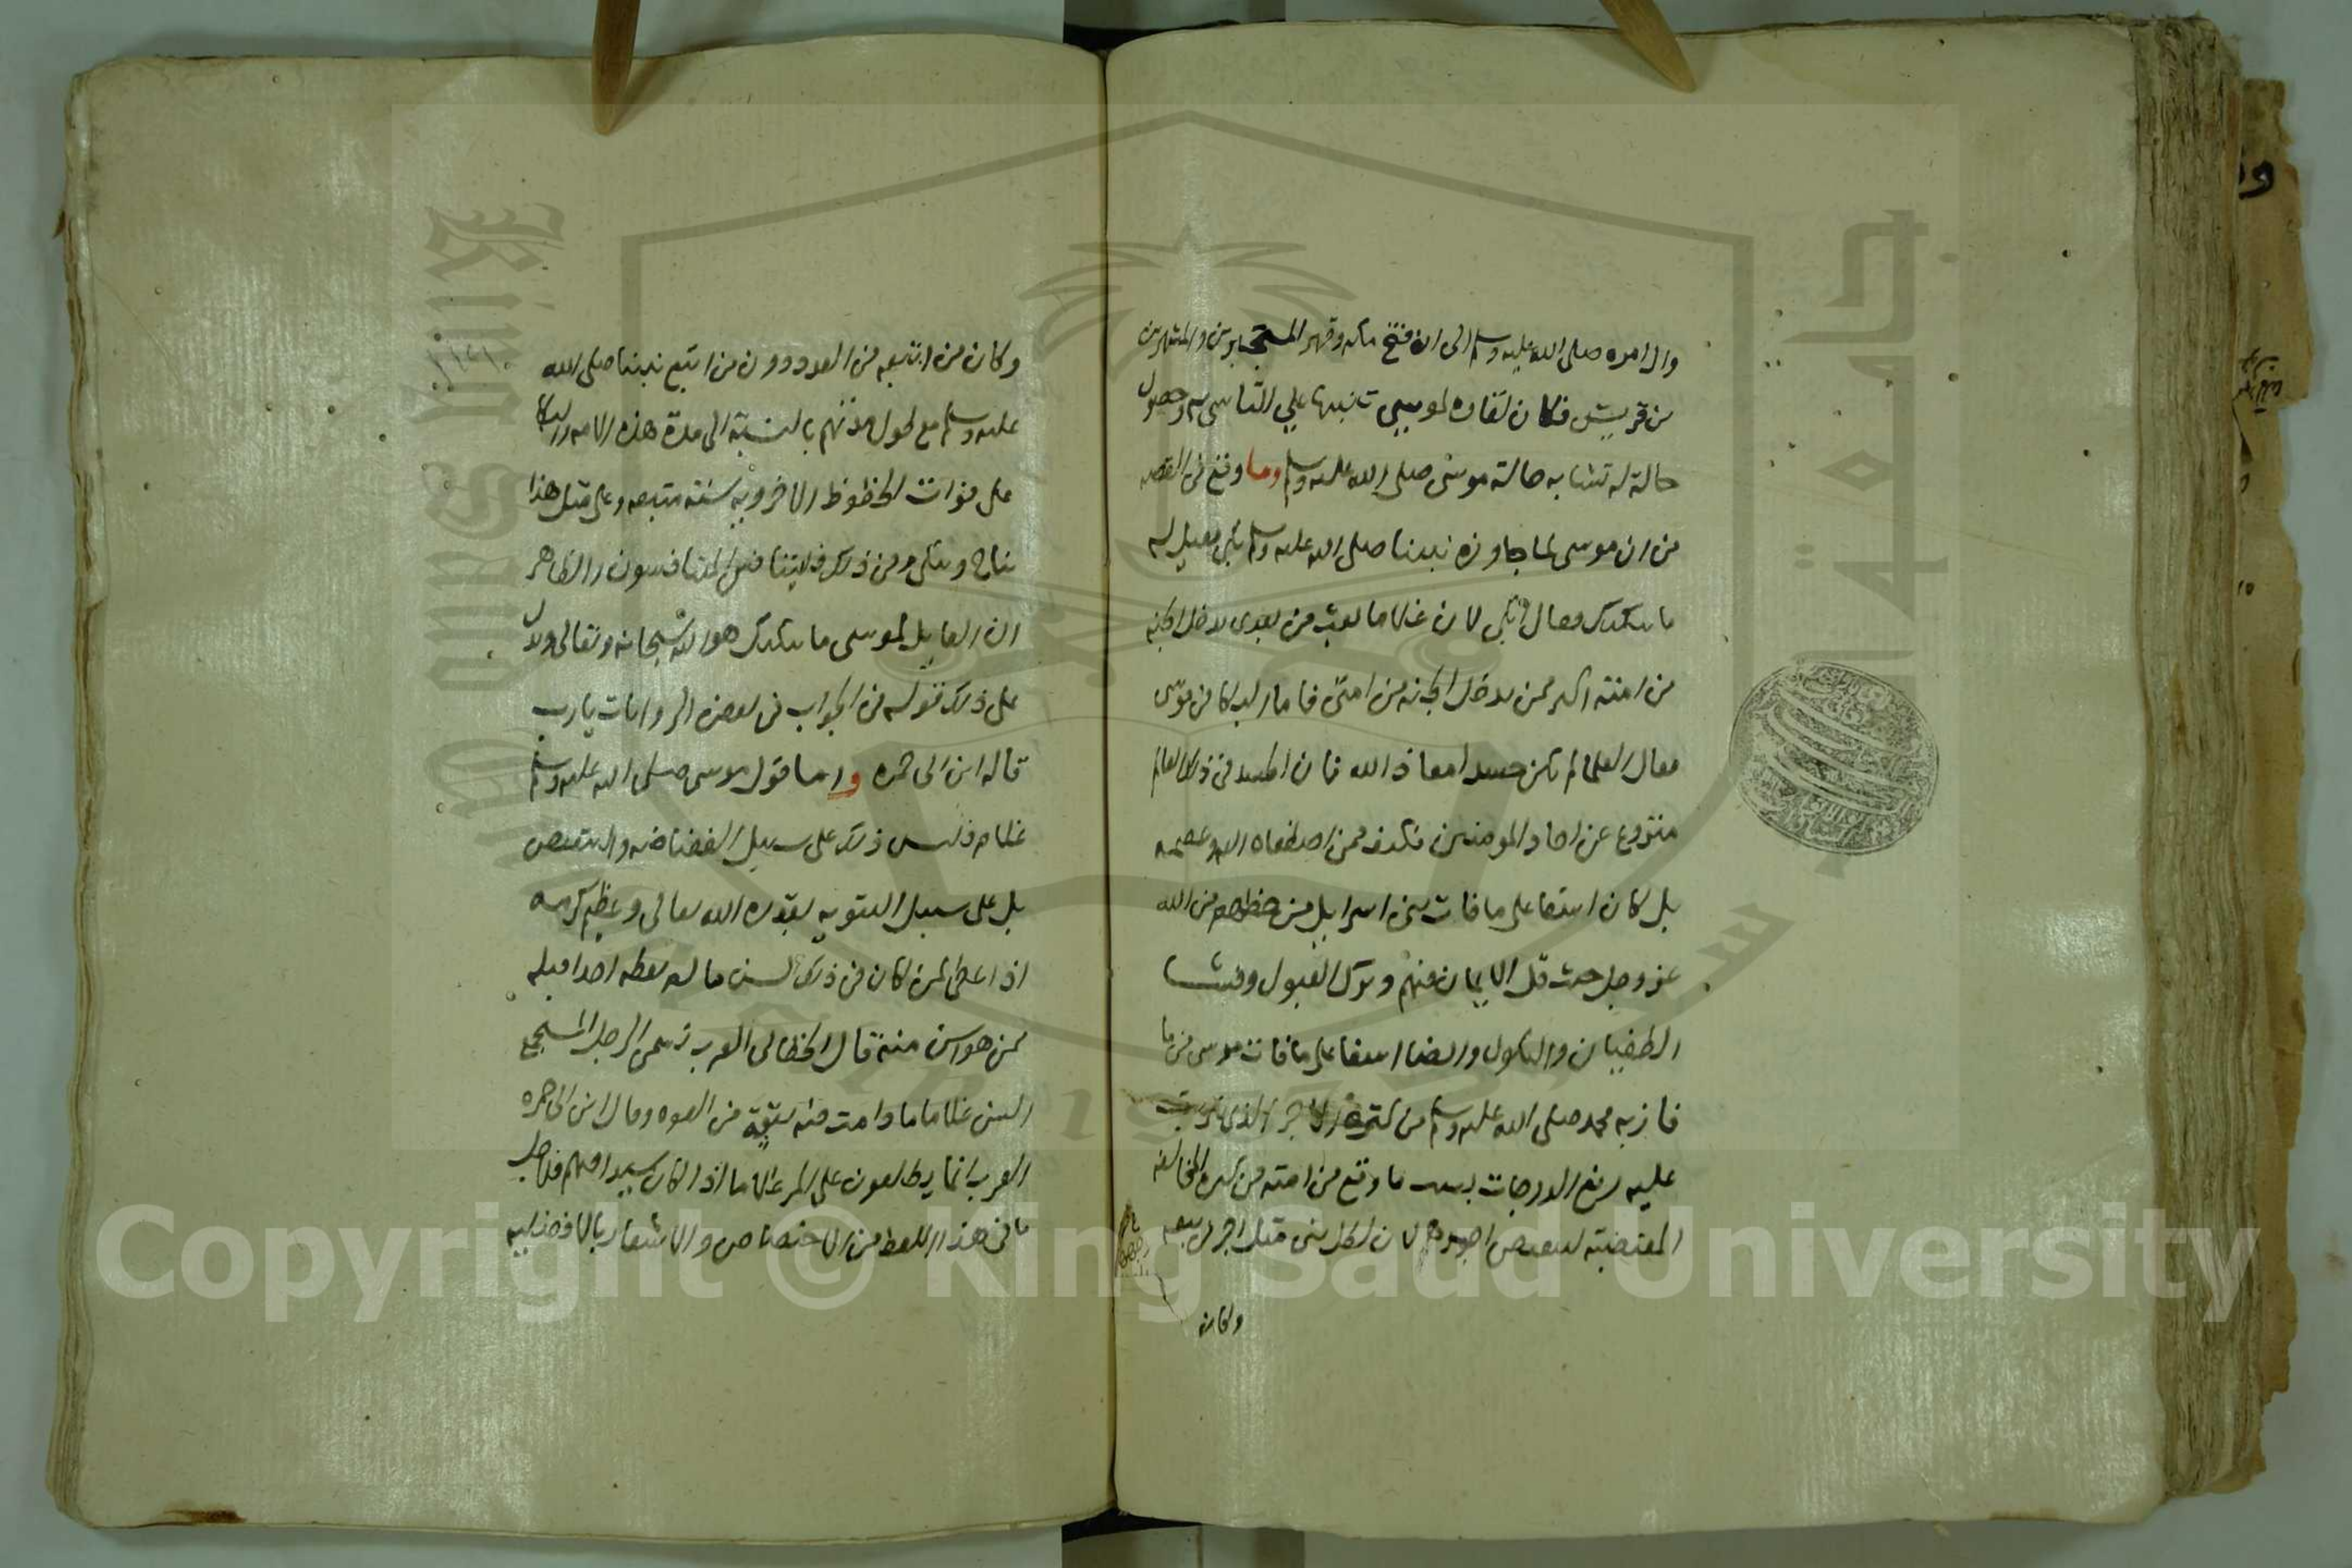 وال امره صلى الله عليه وسلم الى ان فتح مكه وقهر المتجبرين والمشهرين
من قريش فكان لقاه لموسى تنبيها على التاسى به وحصول
حالة له تشابه حالة موسى صلى الله عليه وسلم وما وقع فى القصه
من ان موسى لما جاوزه نبينا صلى الله عليه وسلم بكى فقيل له
ما يبكيك فقال ابكى لان غلاما بعث من بعدى يدخل الجنه
من امته اكثر ممن يدخل الجنه من امتى فما البكا من موسى
فقال العلما لم يكن حسدا معاذ الله فان الحسد فى ذلك العالم
منزوع عن احاد المومنين فكيف ممن اصطفاه الله وعصمه
بل كان اسفا على ما فات بنى اسراييل من حظهم من الله
عز وجل حيث قل الايمان منهم وترك القبول وفشا
الطغيان والنكول وايضا اسفا على ما فات موسى من ما
فاز به محمد صلى الله عليه وسلم من كثرة الاجر الذى يترتب
عليه رفع الدرجات بسبب ما وقع من امته من كثره المخالفه
المقتضيه لتنقيص اجورهم لان لكل نبى مثل اجر من تبعه
وكان
وكان من اتبعه من العدد دون من اتبع نبينا صلى الله
عليه وسلم مع طول مدتهم بالنسبة الى مدة هذه الامه والبكا
على فوات الحظوظ الاخرويه سنه متبعه وعلى مثل هذا
يناح ويبكى ومن ذلك فليتنافس المتنافسون والظاهر
ان القايل لموسى ما يبكيك هو الله سبحانه وتعالى ويدل
على ذلك قوله فى الجواب فى بعض الروايات يارب
قاله ابن ابى جمره واما قول موسى صلى الله عليه وسلم
غلام فليس ذلك على سبيل الغضاضه والتنقيص
بل على سبيل التنويه بقدرة الله تعالى وعظيم كرمه
اذ اعطى لمن كان فى ذلك السن ما لم يعطه احدا قبله
ممن هو اسن منه قال الخطابى العرب تسمى الرجل المستجمع
السن غلاما ما دامت فيه بقية من القوه وقال ابن ابى جمره
العرب انما يطلقون على المرء غلاما اذا كان سيدا فيهم فلاجل
ما فى هذا اللفظ من الاختصاص والاشعار بالافضليه
جامعة
سعود
King Saud University
1957
Copyright © King Saud University